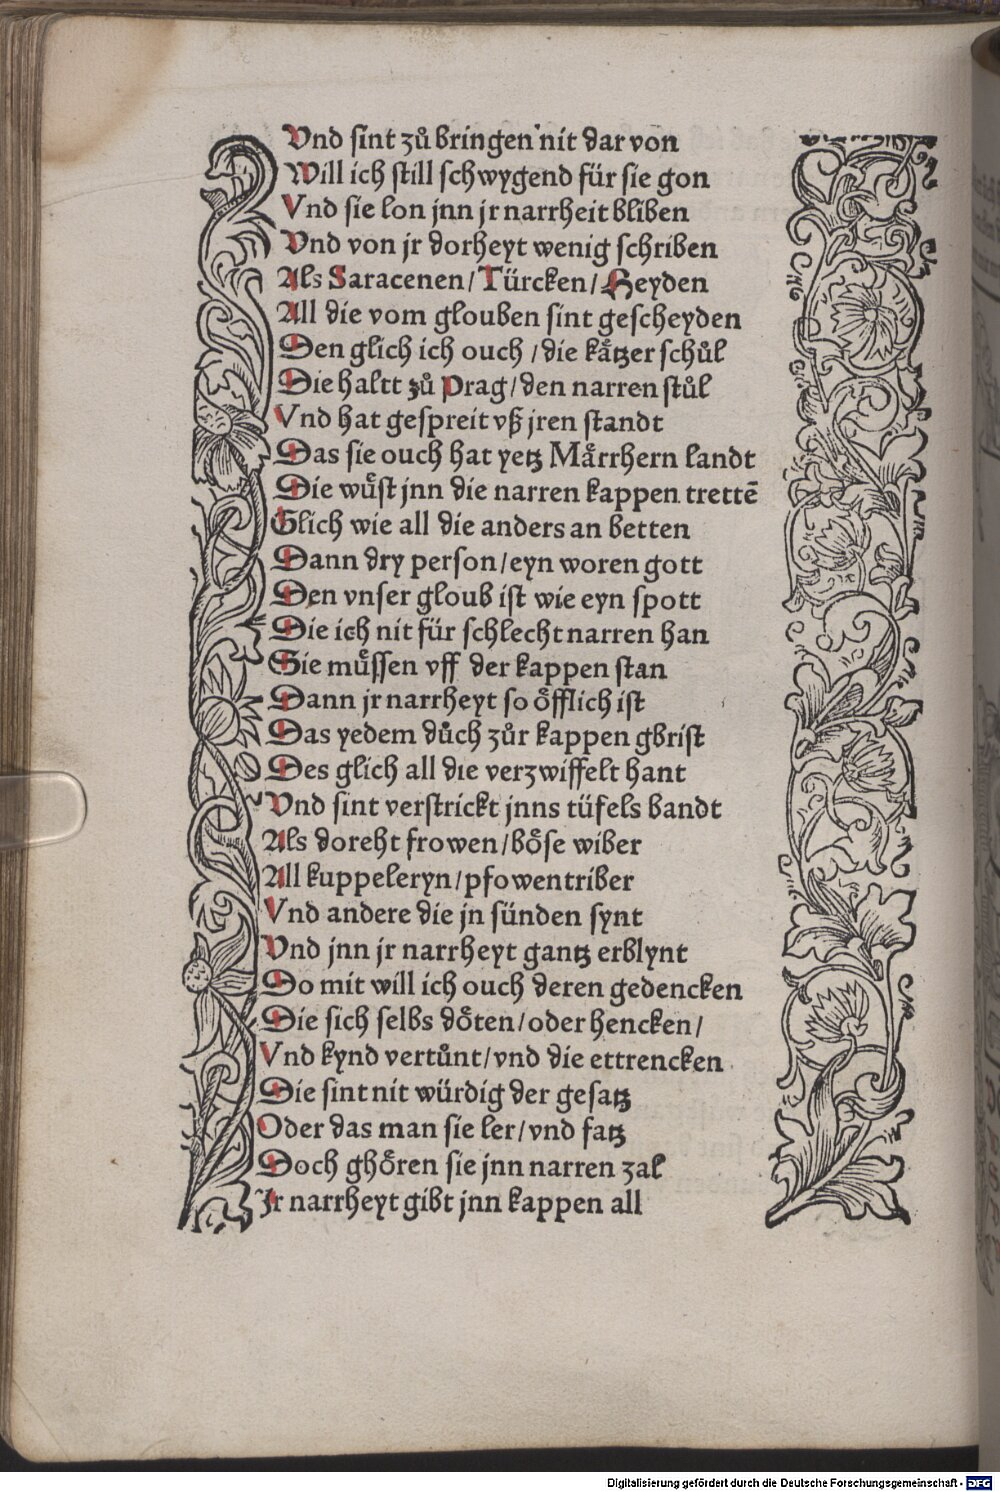 Vnd sint zuͦ bringen nit dar von
Will ich still schwygend für sie gon
Vnd sie lon jnn jr narrheit bliben
Vnd von jr dorheyt wenig schriben
Als Saracenen/Türcken/Heyden
All die vom glouben sint gescheyden
Den glich ich ouch /die kaͤtzer schuͦl
Die haltt zuͦ Prag/den narren stuͦl
Vnd hat gespreit vß jren standt
Das sie ouch hat yetz Maͤrrhern landt
Die wuͤst jnn die narren kappen trettē
Glich wie all die anders an betten
Dann dry person/eyn woren gott
Den vnser gloub ist wie eyn spott
Die ich nit für schlecht narren han
Sie muͤssen vff der kappen stan
Dann jr narrheyt so oͤfflich ist
Das yedem duͦch zuͦr kappen gbrist
Des glich all die verzwiffelt hant
Vnd sint verstrickt jnns tüfels bandt
Als doreht frowen/boͤse wiber
All kuppeleryn/pfowentriber
Vnd andere die jn sünden synt
Vnd jnn jr narrheyt gantz erblynt
Do mit will ich ouch deren gedencken
Die sich selbs doͤten/oder hencken/
Vnd kynd vertuͦnt/vnd die ettrencken
Die sint nit würdig der gesatz
Oder das man sie ler/vnd fatz
Doch ghoͤren sie jnn narren zal
Jr narrheyt gibt jnn kappen all
Digitalisierung gefördert durch die Deutsche Forschungsgemeinschaft - DFG